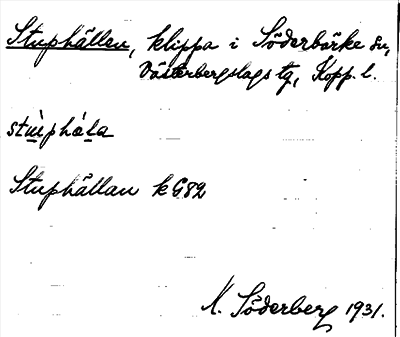 Stuphällen, klippa i Söderbärke sn,
Västerbergslags tg, Kopp. l.
stùphála
Stuphällan kG82
K. Söderberg 1931.